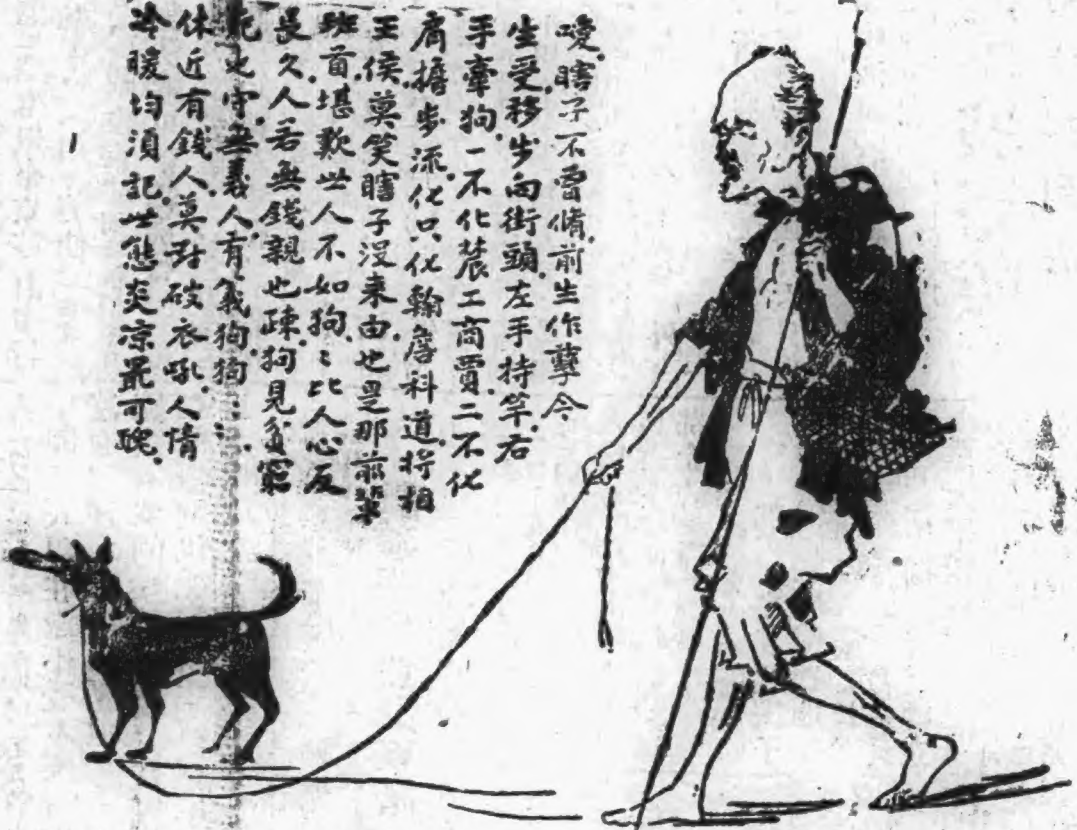 嗳瞎子不曾脩前生作孽今
生受移步向街頭左手持竿右
手牽狗一不化農工商賈二不化
肩擔步流化只化翰詹科道将相
王侯莫笑瞎子没来由也是那前輩
班首堪歎世人不如狗〻比人心反
長久人若無錢親也疎狗見貧窮
守無義人有義狗狗
休近有錢人莫對破衣吼人情
冷暖均須記世態炎凉最可醜